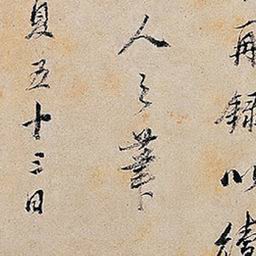 再録以續
人之筆
夏五十三日